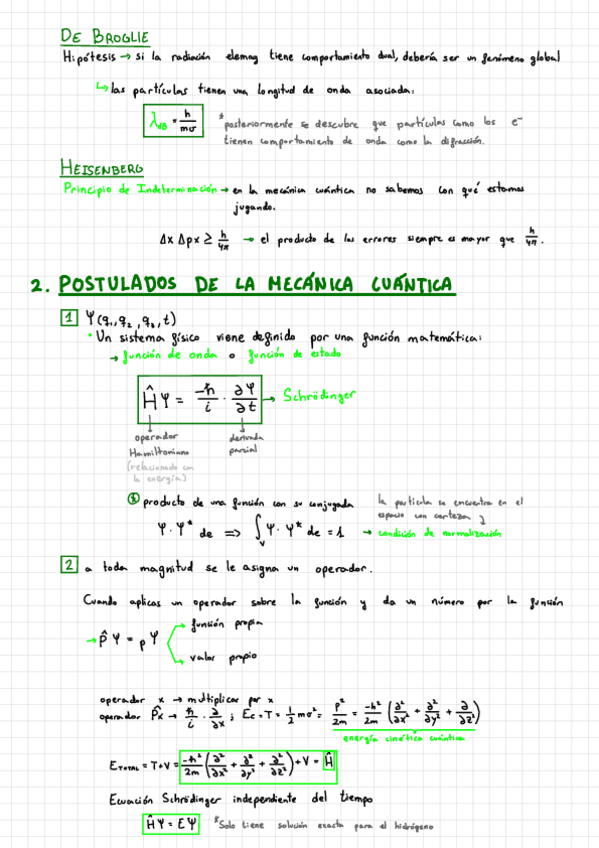 DE BROGLIE
Hipótesis → si la radiación elemag tiene comportamiento dual, debería ser un fenómeno global
↳ las partículas tienen una longitud de onda asociada:
λdB = h/mv *posteriormente se descubre que partículas como los e⁻
tienen comportamiento de onda como la difracción.
HEISENBERG
Principio de Indeterminación → en la mecánica cuántica no sabemos con qué estamos
jugando.
Δx Δpx ≥ h/4π → el producto de los errores siempre es mayor que h/4π.
2. POSTULADOS DE LA MECÁNICA CUÁNTICA
1 Ψ(q₁, q₂, q₃, t)
• Un sistema físico viene definido por una función matemática:
→ función de onda o función de estado
ĤΨ = -ℏ/i · ∂Ψ/∂t → Schrödinger
operador derivada
Hamiltoniano parcial
(relacionado con
la energía)
* producto de una función con su conjugada la partícula se encuentra en el
espacio con certeza
Ψ·Ψ* de ⟹ ∫v Ψ·Ψ* de = 1 → condición de normalización
2 a toda magnitud se le asigna un operador.
Cuando aplicas un operador sobre la función y da un número por la función
→ P̂Ψ = pΨ función propia
valor propio
operador x → multiplicar por x
operador P̂x → ℏ/i · ∂/∂x ; Ec = T = 1/2 mv² = p²/2m = -ℏ²/2m (∂²/∂x² + ∂²/∂y² + ∂/∂z²)
energía cinética cuántica
ETOTAL = T+V = -ℏ²/2m (∂²/∂x² + ∂²/∂y² + ∂²/∂z²) + V = Ĥ
Ecuación Schrödinger independiente del tiempo
ĤΨ = EΨ *Solo tiene solución exacta para el hidrógeno